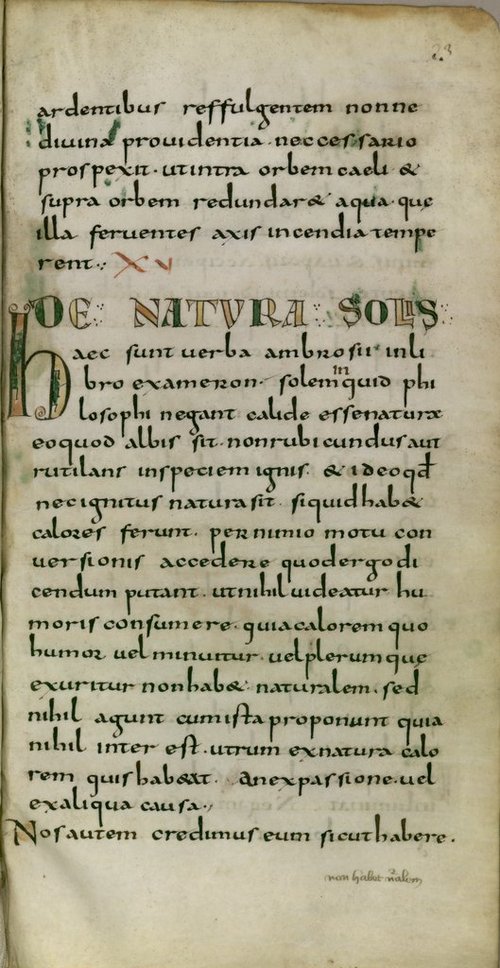 23
ardentibus reffulgentem nonne
diuina prouidentia · neccessario
prospexit · utintra orbem caeli &
supra orbem redundar& aqua · que
illa feruentes axis incendia tempe
rent · XV
DE NATURA SOLIS
haec sunt uerba ambrosii inli
bro exameron · solem in quid phi
losophi negant calide essenaturae
eoquod albis sit · nonrubicundus aut
rutilans inspeciem ignis & ideo qđ
nec ignitus natura sit · siquid hab&
calores ferunt · per nimio motu con
uersionis accedere quodergo di
cendum putant · utnihil uideatur hu
moris consumere · quia calorem quo
humor uel minuitur · uel plerumque
exuritur nonhab& · naturalem · sed
nihil agunt cum ista proponunt quia
nihil inter est · utrum exnatura calo
rem quis hab&at · An expassione · uel
exaliqua causa ·
Nos autem credimus eum sicut habere ·
non habet nalem